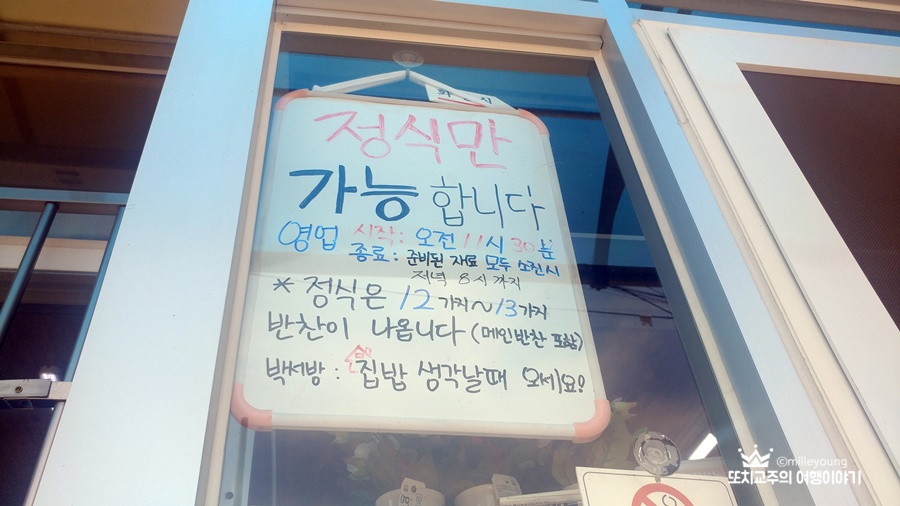 정식만
가능 합니다
영업 시작: 오전 11시 30분
종료: 준비된 재료 모두 소진시
저녁 8시 까지
* 정식은 12가지~13가지
반찬이 나옵니다 (메인반찬 포함)
백서방 : 집밥 생각날때 오세요!
©milleyoung
또치교주의 여행이야기